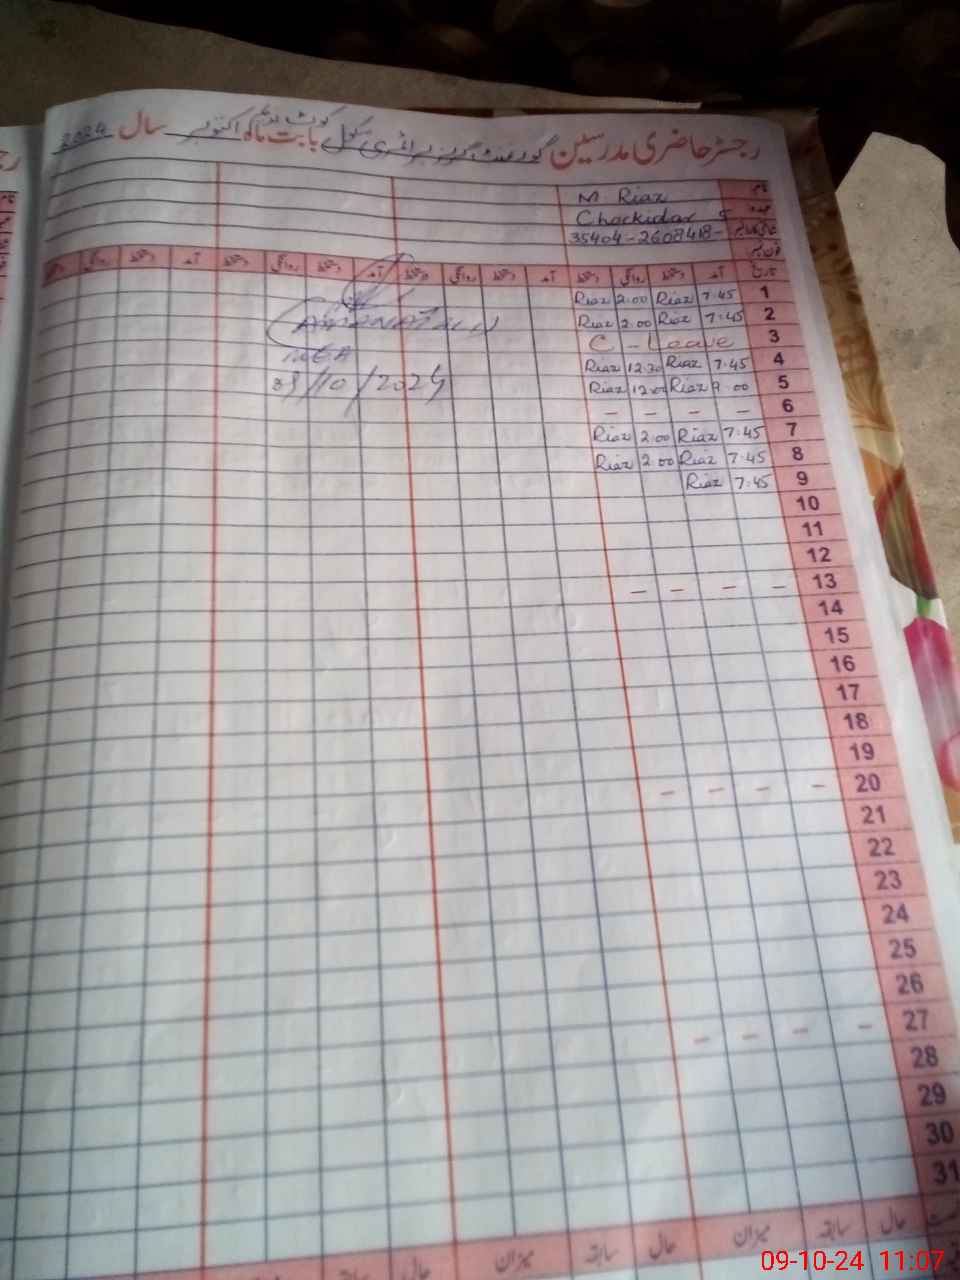 رجسٹر حاضری مدرسین گورنمنٹ گرلز پرائمری سکول کوٹ بابت ماہ اکتوبر سال 2024
نام M Riaz
عہدہ Chockidar
شناختی کارڈ نمبر 35404-2608418-
فون نمبر
تاریخ آمد دستخط روانگی دستخط آمد دستخط روانگی دستخط آمد دستخط روانگی دستخط آمد دستخط روانگی
1 7.45 Riaz 2.00 Riaz
2 7.45 Riaz 2.00 Riaz
3 C - Leave
4 7.45 Riaz 12.30 Riaz
5 9.00 Riaz 12.00 Riaz
6 - - - -
7 7.45 Riaz 2.00 Riaz
8 7.45 Riaz 2.00 Riaz
9 7.45 Riaz
10
11
12
13 - - - -
14
15
16
17
18
19
20 - - - -
21
22
23
24
25
26
27 - - - -
28
29
30
31
MEA
/10/2024
حال سابقہ میزان حال سابقہ میزان حال سابقہ
09-10-24 11:07